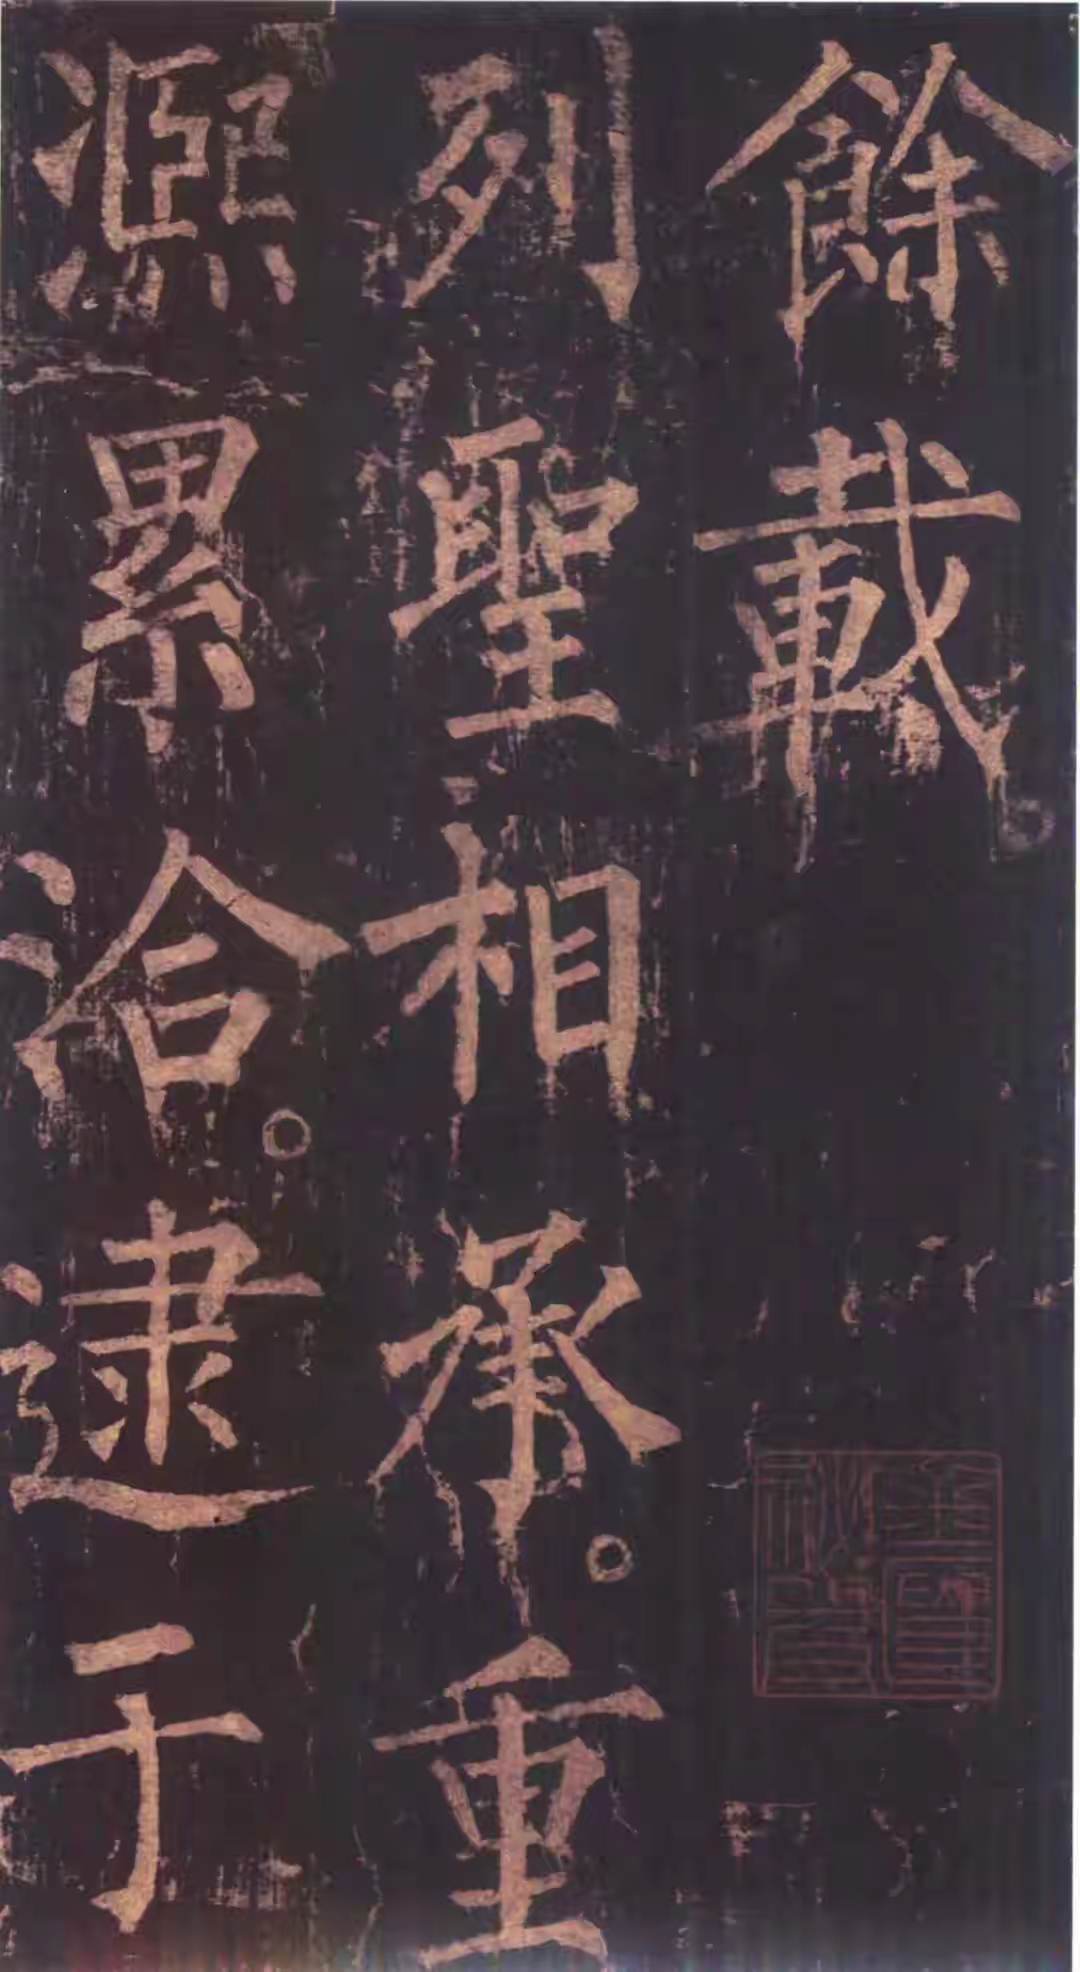 餘載
列聖相承重
熈累洽逮于